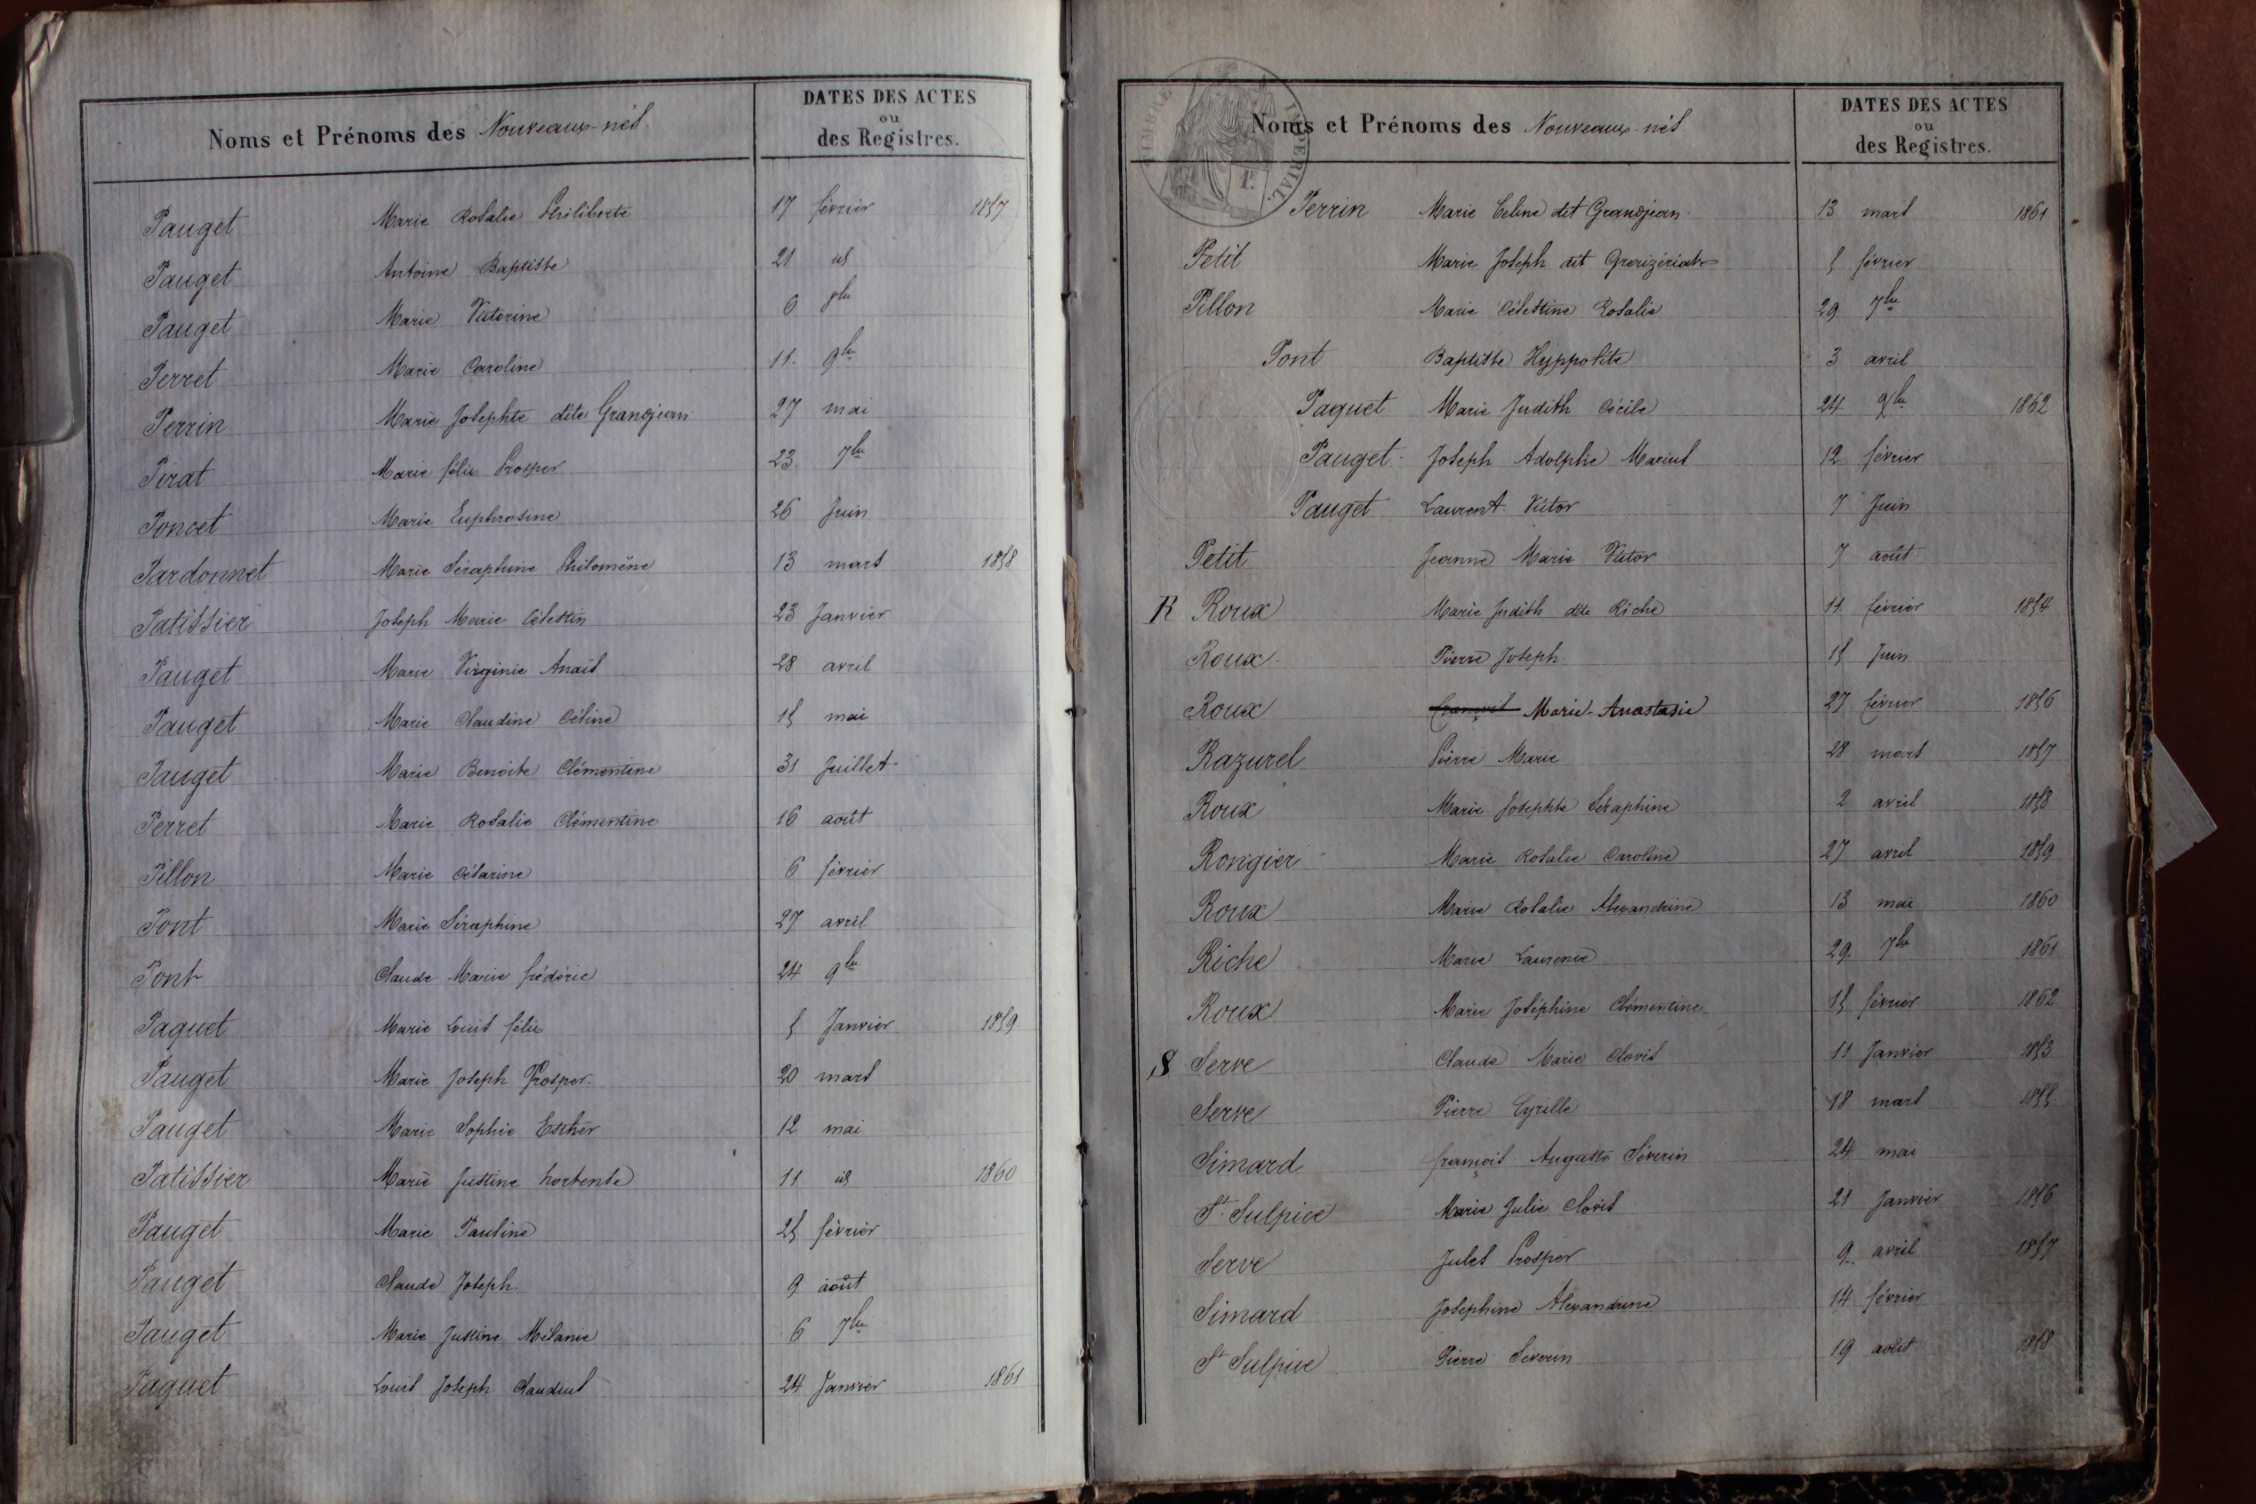 Noms et Prénoms des Nouveaux-nés
DATES DES ACTES
ou
des Registres.
Pauget Marie Rosalie Philiberte 17 février 1857
Pauget Antoine Baptiste 21 id
Pauget Marie Victorine 6 8bre
Perret Marie Caroline 11 9bre
Perrin Marie Josephte dite Grandjean 27 mai
Pirat Marie félix Prosper 23 7bre
Poncet Marie Euphrosine 26 Juin
Pardonnet Marie Séraphine Philomène 13 mars 1858
Patissier Joseph Marie Célestin 23 Janvier
Pauget Marie Virginie Anaïs 28 avril
Pauget Marie Claudine Céline 15 mai
Pauget Marie Benoite Clémentine 31 Juillet
Perret Marie Rosalie Clémentine 16 août
Pillon Marie Césarine 6 février
Pont Marie Séraphine 27 avril
Pont Claude Marie frédéric 24 9bre
Paquet Marie Louis félix 5 Janvier 1859
Pauget Marie Joseph Prosper 20 mars
Pauget Marie Sophie Esther 12 mai
Patissier Marie Justine hortense 11 id 1860
Pauget Marie Pauline 25 février
Pauget Claude Joseph 9 août
Pauget Marie Justine Mélanie 6 7bre
Paquet Louis Joseph Claudius 24 Janvier 1861
TIMBRE IMPERIAL
1f.
Noms et Prénoms des Nouveaux-nés
DATES DES ACTES
ou
des Registres.
Perrin Marie Celine dit Grandjean 13 mars 1861
Petit Marie Joseph dit 5 février
Pillon Marie Célestine Rosalie 29 7bre
Pont Baptiste Hyppolite 3 avril
Paquet Marie Judith Cécile 24 9bre 1862
Pauget Joseph Adolphe Marius 12 février
Pauget Laurent Victor 7 Juin
Petit Jeanne Marie Victor 7 août
R Roux Marie Judith dite Riche 11 février 1854
Roux Pierre Joseph 15 Juin
Roux François Marie-Anastasie 27 février 1856
Razurel Pierre Marie 28 mars 1857
Roux Marie Josephte Séraphine 2 avril 1858
Rongier Marie Rosalie Caroline 27 avril 1859
Roux Marie Rosalie Alexandrine 13 mai 1860
Riche Marie Laurence 29 7bre 1861
Roux Marie Joséphine Clémentine 15 février 1862
S Serve Claude Marie Clovis 11 Janvier 1853
Serve Pierre Cyrille 18 mars 1855
Simard françois Auguste Séverin 24 mai
St Sulpice Marie Julie Clovis 21 Janvier 1856
Serve Jules Prosper 9 avril 1857
Simard Joséphine Alexandrine 14 février
St Sulpice Pierre Severin 19 août 1858